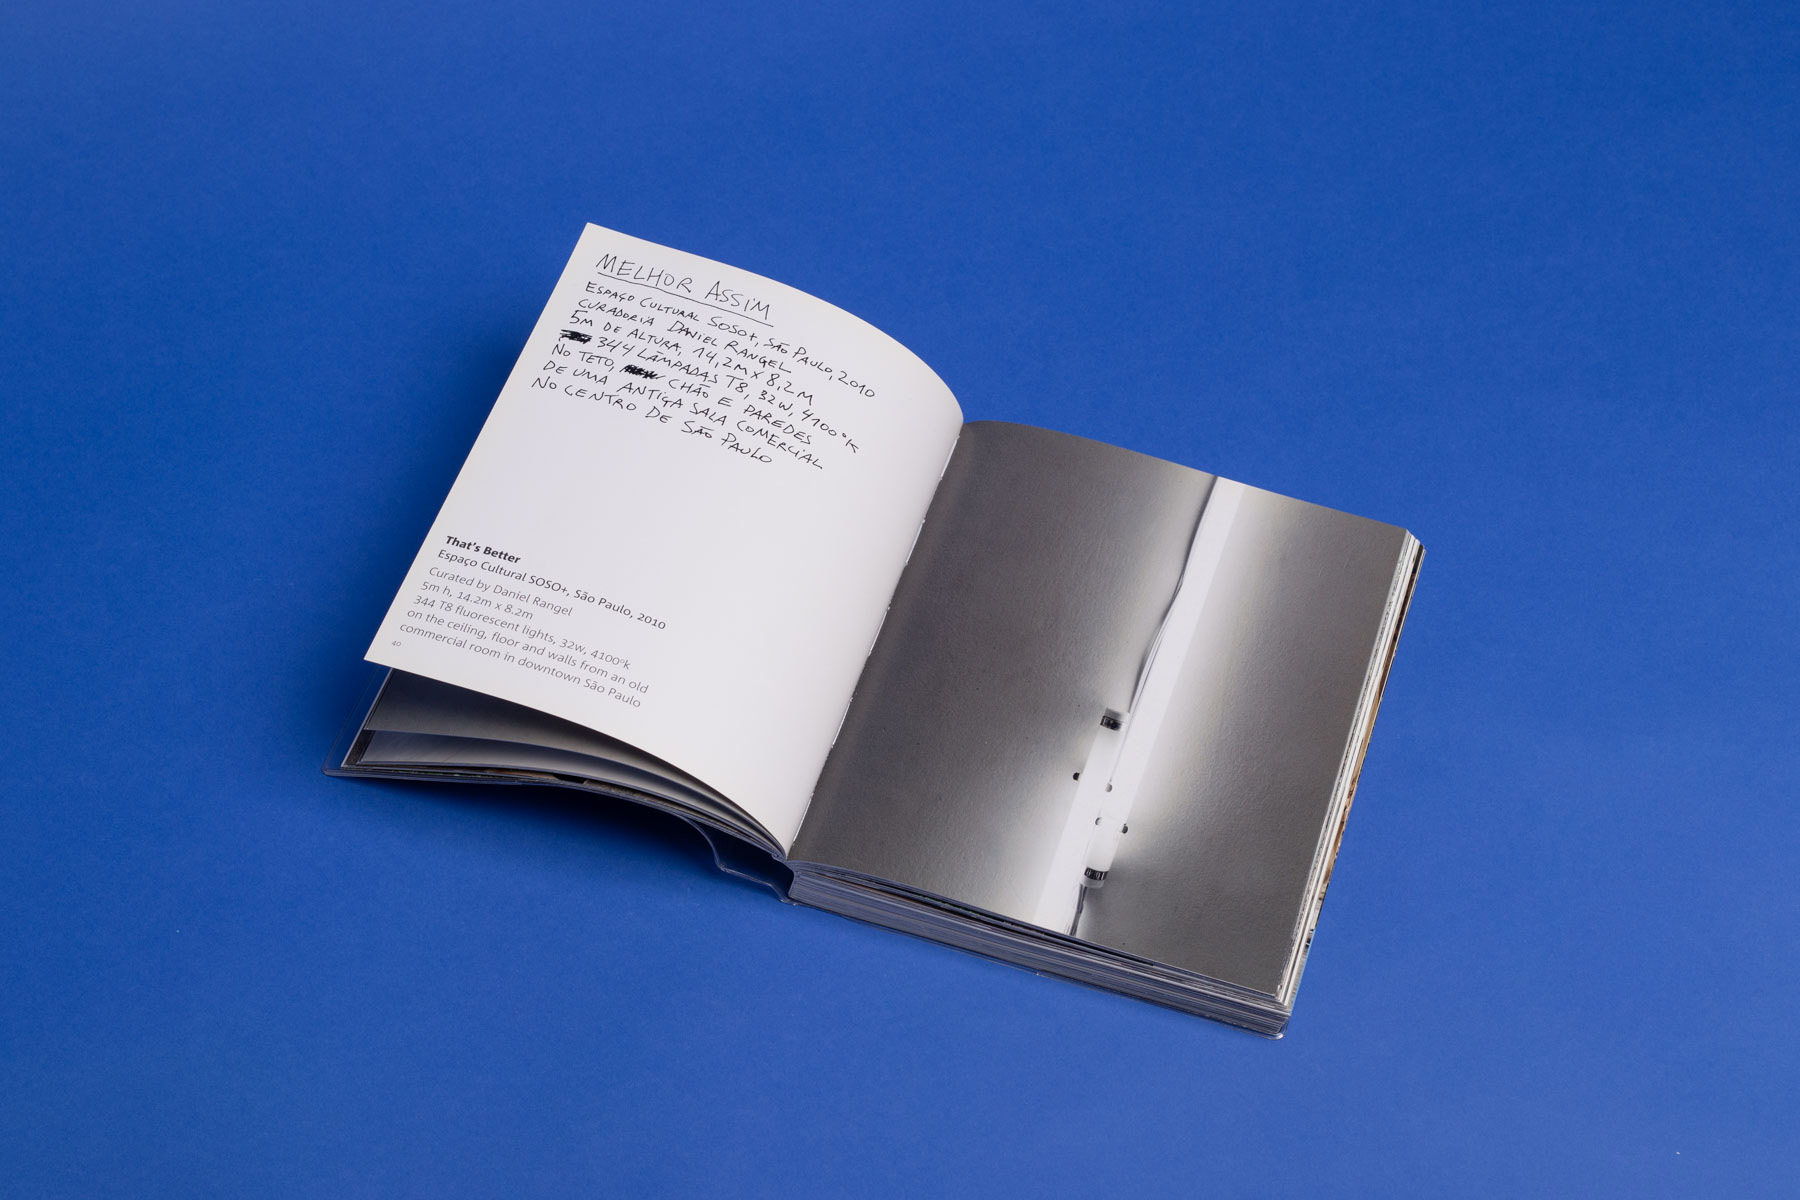 MELHOR ASSIM
ESPAÇO CULTURAL SOSO+, SÃO PAULO, 2010
CURADORIA DANIEL RANGEL
5M DE ALTURA, 14,2M X 8,2M
344 LÂMPADAS T8, 32W, 4100°K
NO TETO, CHÃO E PAREDES
DE UMA ANTIGA SALA COMERCIAL
NO CENTRO DE SÃO PAULO
That's Better
Espaço Cultural SOSO+, São Paulo, 2010
Curated by Daniel Rangel
5m h, 14.2m x 8.2m
344 T8 fluorescent lights, 32w, 4100°k
on the ceiling, floor and walls from an old
commercial room in downtown São Paulo
40